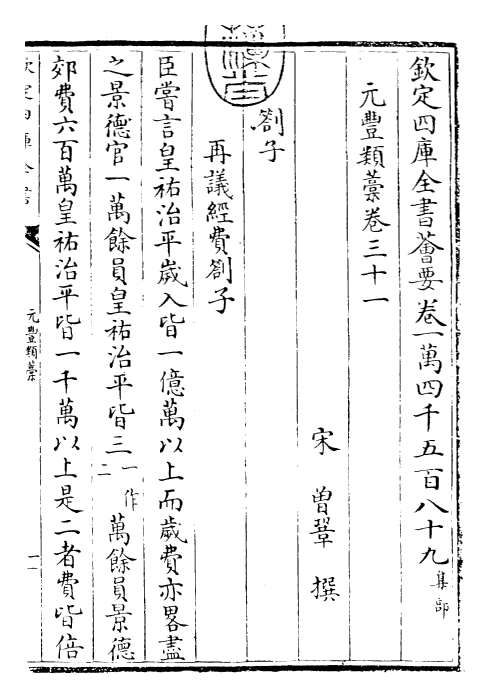 欽定四庫全書薈要卷一萬四千五百八十九集部
元豐類藁卷三十一
宋 曾鞏 撰
劄子
再議經費劄子
臣嘗言皇祐治平歲入皆一億萬以上而歲費亦畧盡
之景德官一萬餘員皇祐治平皆三一作二萬餘員景德
郊費六百萬皇祐治平皆一千萬以上是二者費皆倍
元豐類藁
一